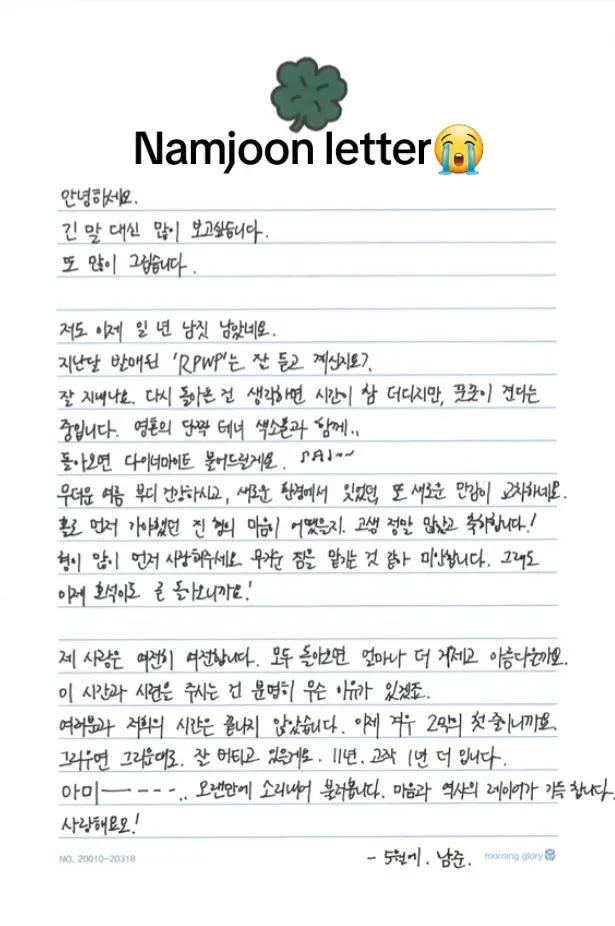 Namjoon letter😭
안녕하세요.
긴 말 대신 많이 보고싶습니다.
또 많이 그립습니다.
저도 이제 일 년 남짓 남았네요.
지난달 발매된 'RPWP'는 잘 듣고 계신지요?
잘 지내나요. 다시 돌아올 걸 생각하면 시간이 참 더디지만, 꿋꿋이 견디는
중입니다. 영혼의 단짝 테너 색소폰과 함께..
돌아오면 다이너마이트 불어드릴게요. ♪A♩~~
무더운 여름 부디 건강하시고, 새로운 환경에서 잊었던, 또 새로운 만감이 교차하네요.
홀로 먼저 가야했던 진 형의 마음이 어땠을지. 고생 정말 많았고 축하합니다!
형이 많이 먼저 사랑해주세요. 무거운 짐을 맡기는 것 같아 미안합니다. 그래도
이제 호석이도 곧 돌아오니까요!
제 사랑은 여전히 여전합니다. 모두 돌아오면 얼마나 더 거세고 아름다운까요.
이 시간과 시련을 주시는 건 분명히 무슨 이유가 있겠죠.
여러분과 저희의 시간은 끝나지 않았습니다. 이제 겨우 2막의 첫 줄이니까요.
그리우면 그리운대로. 잘 버티고 있을게요. 11년. 고작 1년 더 입니다.
아미ㅡ----.. 오랜만에 소리내어 불러봅니다. 마음과 역사의 레이어가 가득 합니다.
사랑해요오!
- 5월에. 남준.
NO. 20010-20318
morning glory